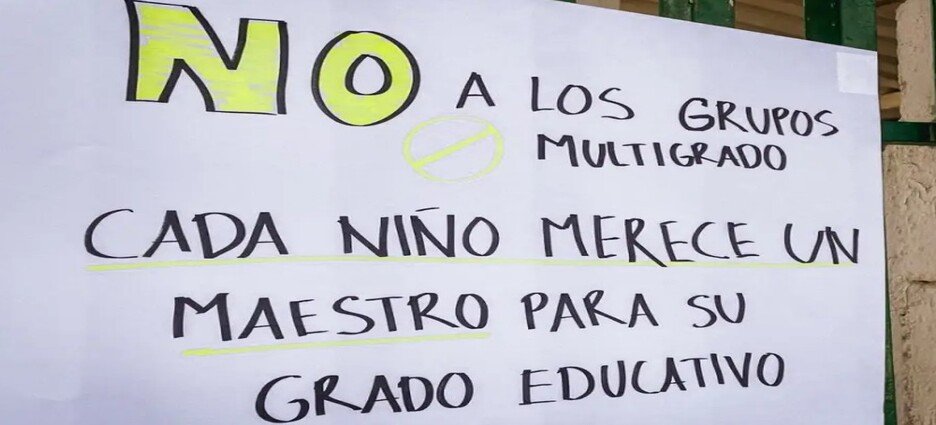 NO A LOS GRUPOS
MULTIGRADO
CADA NIÑO MERECE UN
MAESTRO PARA SU
GRADO EDUCATIVO